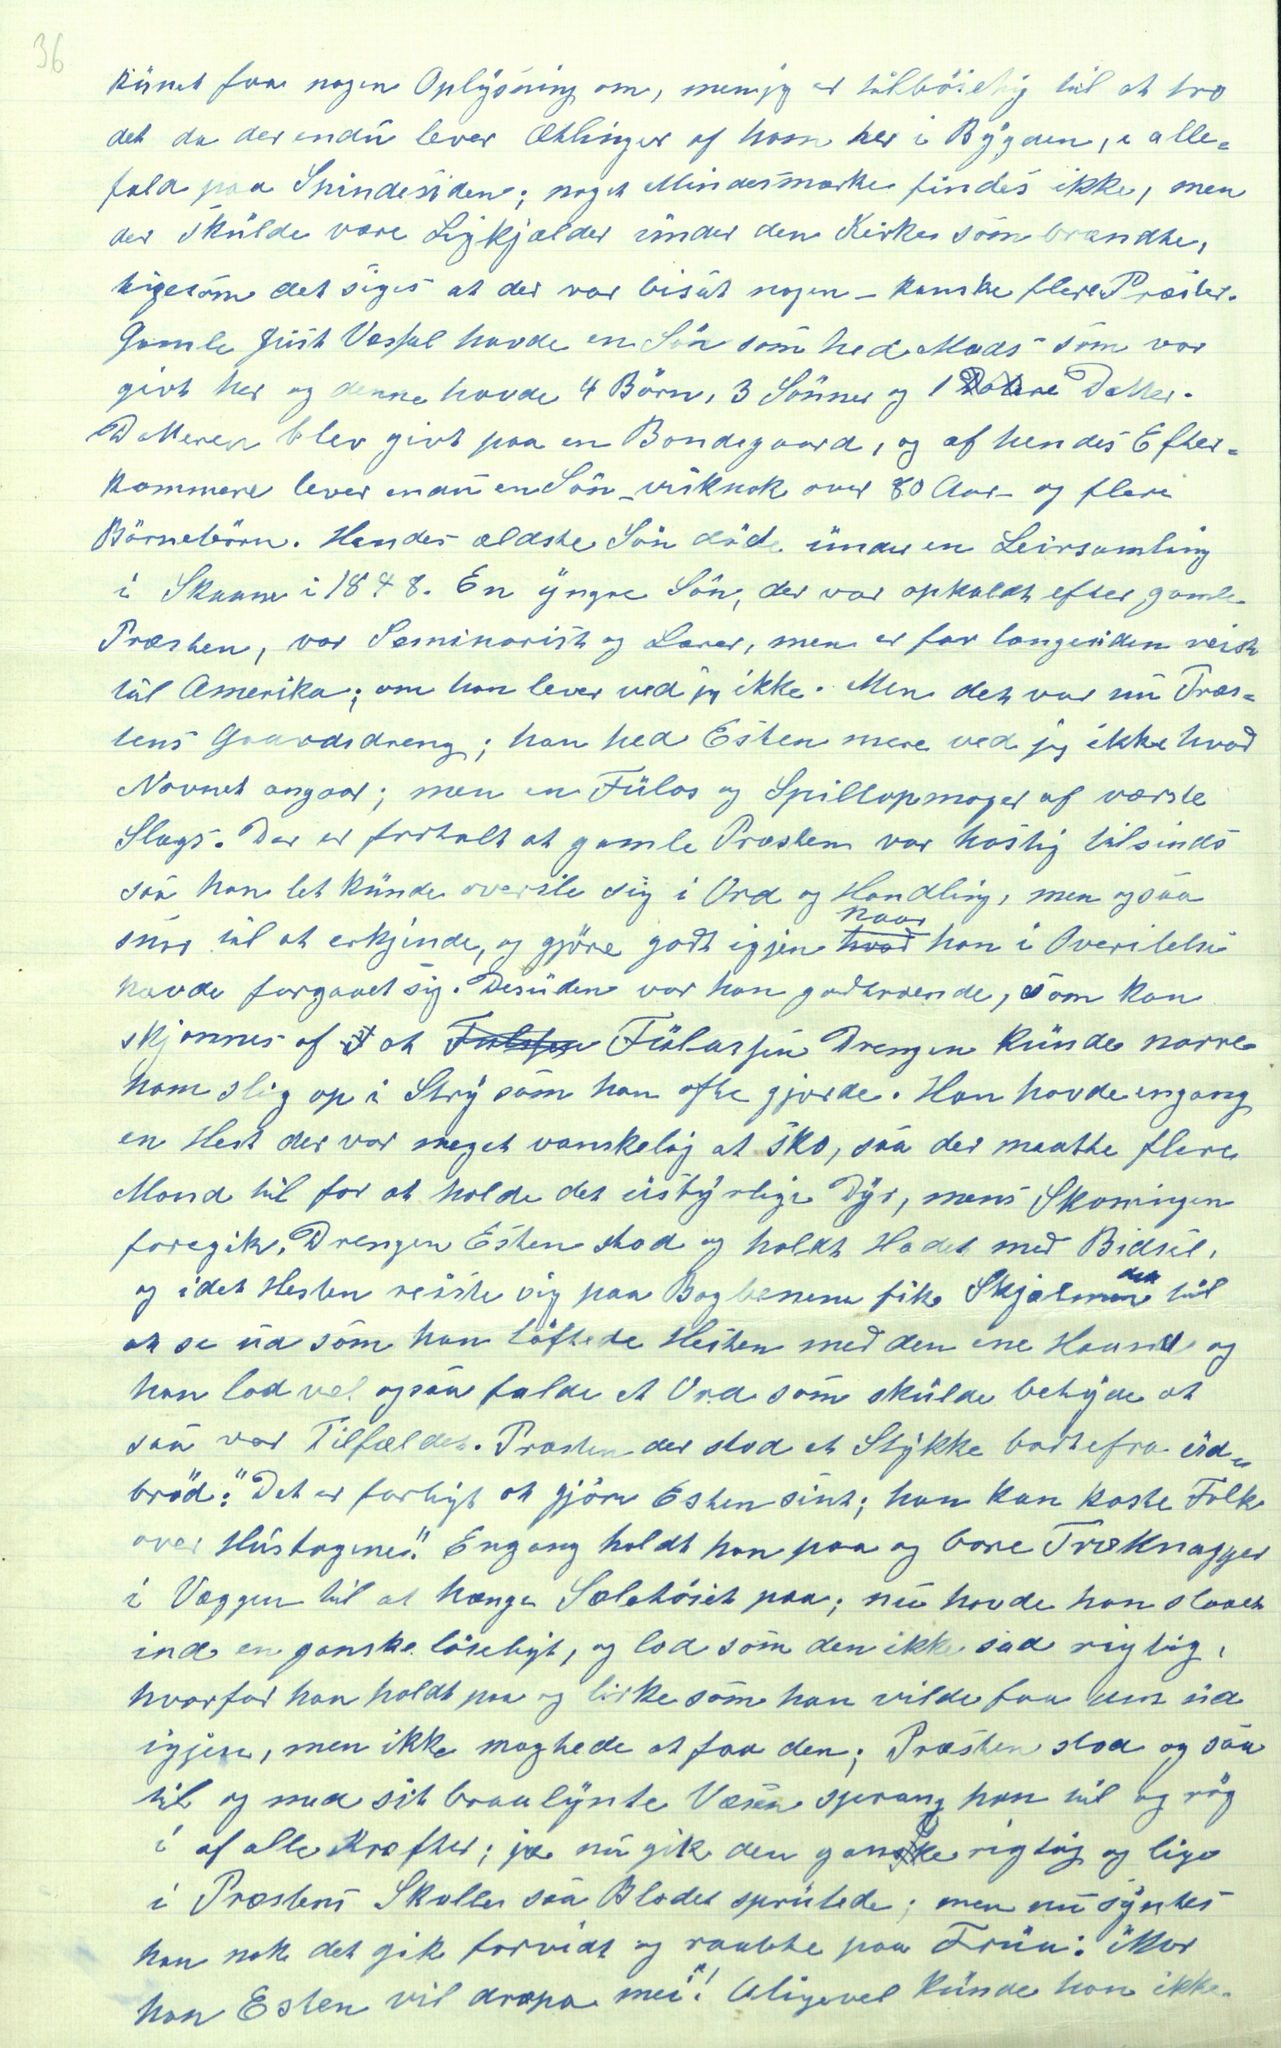 36
kunet faa nogen Oplysning om, men jeg er tilböielig til at tro
det da der endu lever Ætlinger af ham her i Bygden, i alle=
fald paa Spindesiden; noget Mindesmærke findes ikke, men
der skulde være Ligkjælder under den Kirke som brændte,
ligesom det siges at der var bisat nogen - kanske flere Præster.
Gamle Just Vessel havde en Sön som hed Mads som var
givt her og denne havde 4 Börn, 3 Sönner og 1 Datter.
Datteren blev givt paa en Bondegaard, og af hendes Efter=
kommere lever endu en Sön - visknok over 80 Aar - og flere
Börnebörn. Hendes ældste Sön döde under en Leirsamling
i Skaane i 1848. En yngre Sön, der var opkaldt efter gamle
Præsten, var Seminarist og Lærer, men er for langesiden reist
til Amerika; om han lever ved jeg ikke. Men det var nu Præs=
tens Gaardsdreng; han hed Esten mere ved jeg ikke hvad
Navnet angaar; men en Fülas og Spillopmager af værste
Slags. Der er fortalt at gamle Præsten var hastig tilsinds
saa han let kunde overile sig i Ord og Handling, men ogsaa
snar til at erkjende, og gjöre godt igjen hvad naar han i Overilelse
havde forgaaet sig. Desuden var han godtroende, som kan
skjönnes af at Fülassen Drengen kunde narre
ham slig op i Stry som han ofte gjorde. Han havde engang
en Hest der var meget vanskelig at sko, saa der maatte flere
Mand til for at holde det ustyrlige Dyr, mens Skoningen
foregik. Drengen Esten stod og holdt Hodet med Bidsel,
og idet Hesten reiste sig paa Bagbenene fik Skjelmen det til
at se ud som han löftede Hesten med den ene Haand og
han lod vel ogsaa falde et Ord som skulde betyde at
saa var Tilfældet. Præsten der stod et Stykke bortefra ud=
bröd: "Det er farligt at gjöre Esten sint; han kan kaste Folk
over Hustagene". Engang holdt han paa og bore Træknagger
i Væggen til at hænge Sæletöiet paa; nu havde han slaaet
ind en ganske löseligt, og lod som den ikke sad rigtig,
hvorfor han holdt paa og lirke som han vilde faa den ud
igjen, men ikke magtede at faa den; Præsten stod og saa
til og med sit braalynte Væsen sprang han til og rög
i af alle Kræfter; jo nu gik den ganske rigtig og lige
i Præstens Skalle saa Blodet sprutede; men nu syntes
han nok det gik forvidt og raabte paa Fruu: "Mor
han Esten vil dræpa mei"! Aligevel kunde han ikke